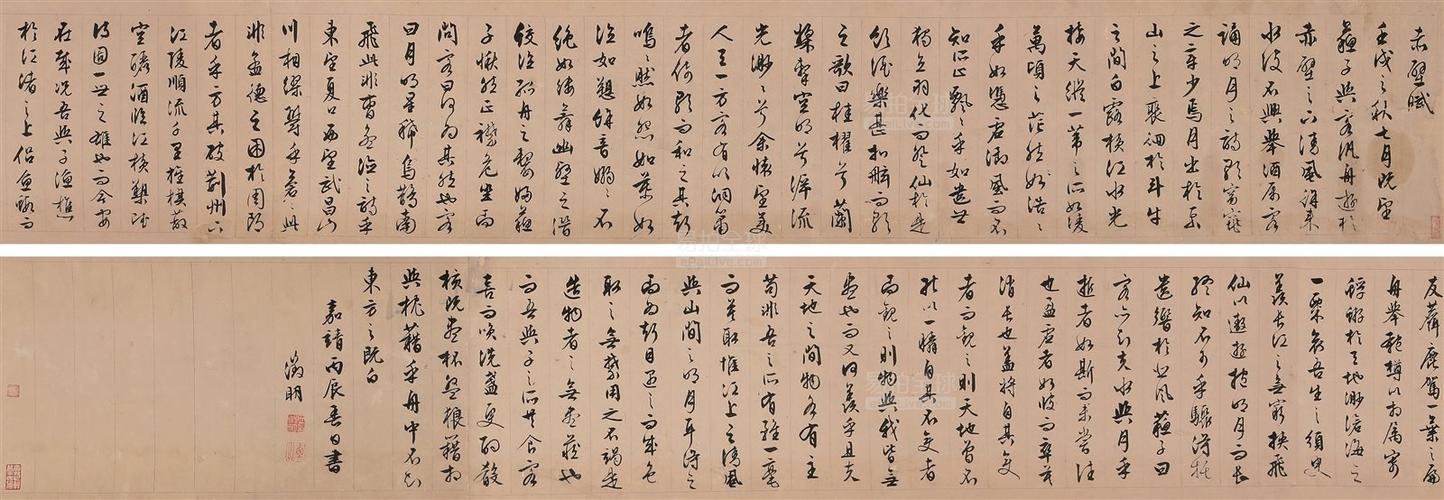 赤壁賦
壬戌之秋七月既望
蘇子與客汎舟遊於
赤壁之下清風徐來
水波不興舉酒屬客
誦明月之詩歌窈窕
之章少焉月出於東
山之上裴徊於斗牛
之間白露横江水光
接天縱一葦之所如淩
萬頃之茫然浩浩
乎如憑虛御風而不
知所止飄飄乎如遺世
獨立羽化而登仙於是
飲酒樂甚扣舷而歌
之歌曰桂櫂兮蘭
槳擊空明兮泝流
光渺渺兮余懷望美
人兮一方客有吹洞簫
者倚歌而和之其聲
嗚嗚然如怨如慕如
泣如愬餘音嫋嫋不
絶如縷舞幽壑之潛
蛟泣孤舟之嫠婦蘇
子愀然正襟危坐而
問客曰何為其然也客
曰月明星稀烏鵲南
飛此非曹孟德之詩乎
東望夏口西望武昌山
川相繆鬱乎蒼蒼此
非孟德之困於周郎
者乎方其破荆州下
江陵順流千里旌旗蔽
空釃酒臨江横槊賦
詩固一世之雄也而今安
在哉況吾與子漁樵
於江渚之上侣魚蝦而
友麋鹿駕一葉之扁
舟舉匏樽以相屬寄
蜉蝣於天地渺滄海之
一粟哀吾生之須臾
羨長江之無窮挾飛
仙以遨遊抱明月而長
終知不可乎驟得托
遺響於悲風蘇子曰
客亦知夫水與月乎
逝者如斯而未嘗往
也盈虛者如彼而卒莫
消長也蓋將自其變
者而觀之則天地曾不
能以一瞬自其不變者
而觀之則物與我皆無
盡也而又何羨乎且夫
天地之間物各有主
苟非吾之所有雖一毫
而莫取惟江上之清風
與山間之明月耳得之
而為聲目遇之而成色
取之無禁用之不竭是
造物者之無盡藏也
而吾與子之所共食客
喜而笑洗盞更酌殽
核既盡杯盤狼藉相
與枕藉乎舟中不知
東方之既白
嘉靖丙辰日書
徵明
易拍全球
epaiLive.com